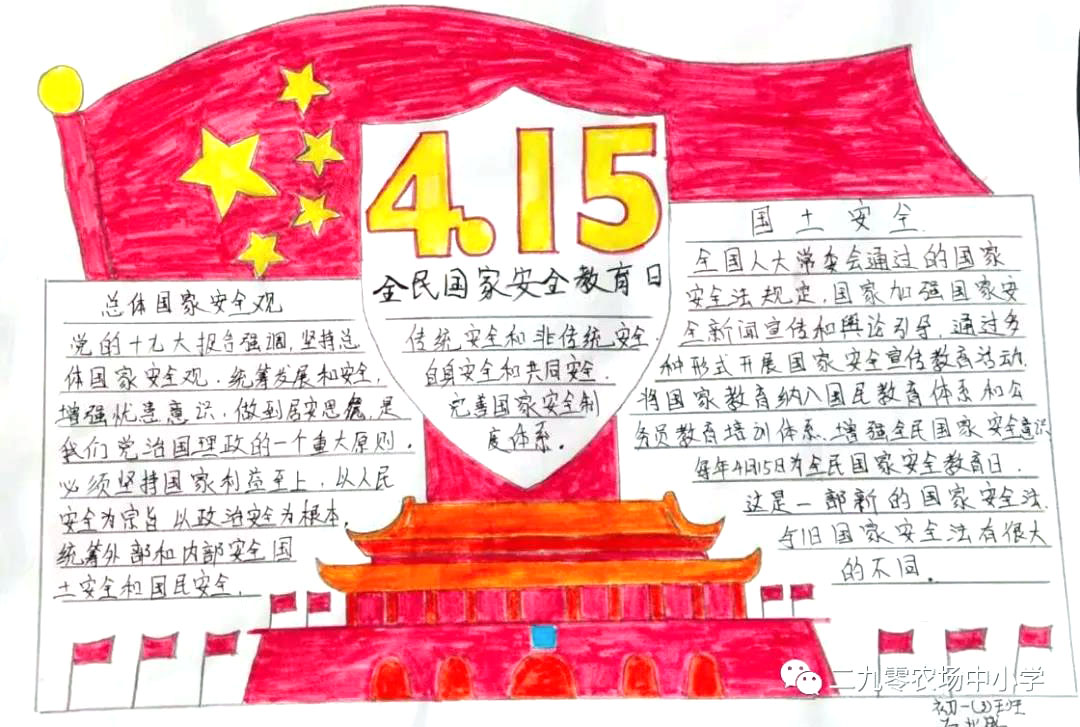 4.15
全民国家安全教育日
总体国家安全观
党的十九大报告强调,坚持总
体国家安全观.统筹发展和安全,
增强忧患意识,做到居安思危,是
我们党治国理政的一个重大原则.
必须坚持国家利益至上,以人民
安全为宗旨以政治安全为根本.
统筹外部和内部安全国
土安全和国民安全.
传统安全和非传统安全
自身安全和共同安全.
完善国家安全制
度体系。
国土安全
全国人大常委会通过的国家
安全法规定,国家加强国家安
全新闻宣传和舆论引导,通过多
种形式开展国家安全宣传教育活动.
将国家教育纳入国民教育体系和公
务员教育培训体系、增强全民国家安全意识
每年4月15日为全民国家安全教育日.
这是一部新的国家安全法.
与旧国家安全法有很大
的不同。
二九零农场中小学
初一(3)班